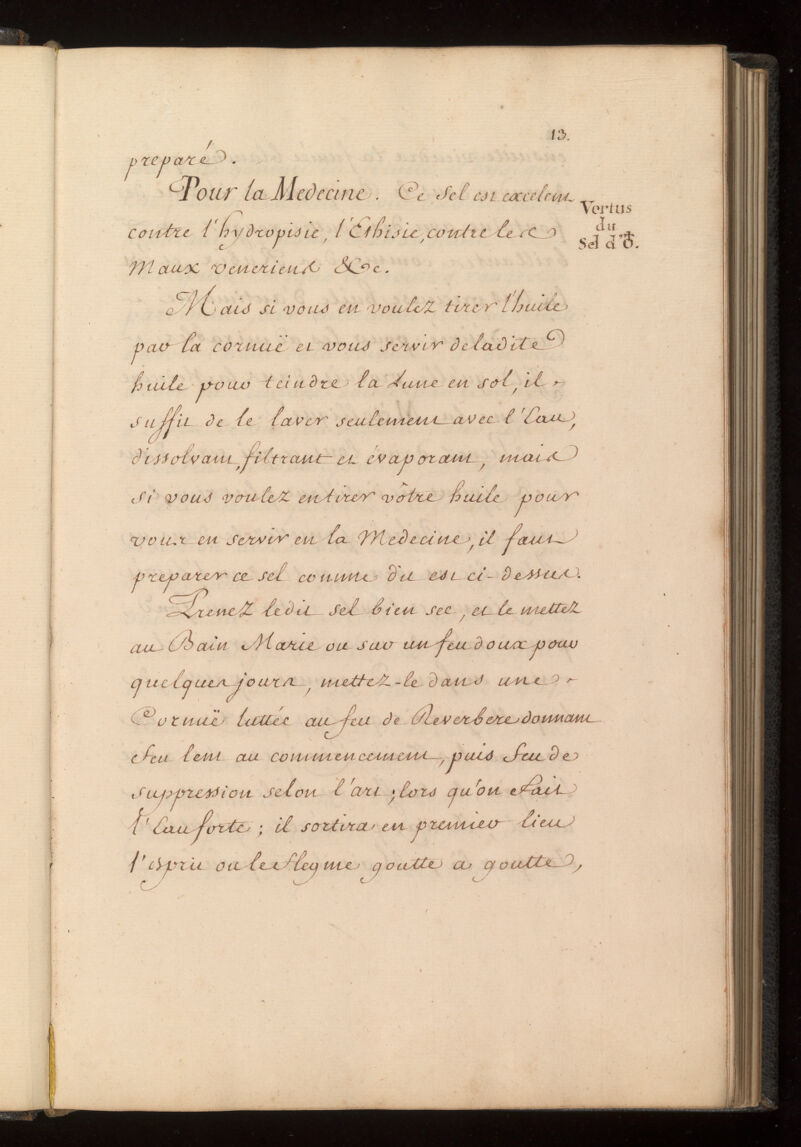 13.
preparé.
Pour la Medecine. Ce Sel est excelent
Vertus
du
Sel d'♁.
contre l'hydropisie, l'Ethisie, contre les
Maux veneriens &c.
Mais si vous en voulez tirer l'huile
par la cornuë et vous servir de ladite
huile pour teindre la Lune en sol, il
suffit de le laver seulement avec l'Eau,
dissolvant, filtrant et évaporant, mais
si vous voulez en tirer vôtre huile pour
vous en servir en la Medecine, il faut
preparer ce sel comme dit est ci-dessus.
Prenez ledit sel bien sec, et le mettez
au Bain Marie ou sur un feu doux pour
quelques jours, mettez-le dans une
Cornuë luttée au feu de Reverbere donnant
feu lent au commencement, puis feu de
suppression selon l'art; lors qu'on fait
l'Eau forte; il sortira en premier lieu
l'esprit ou le flegme goutte a goutte,